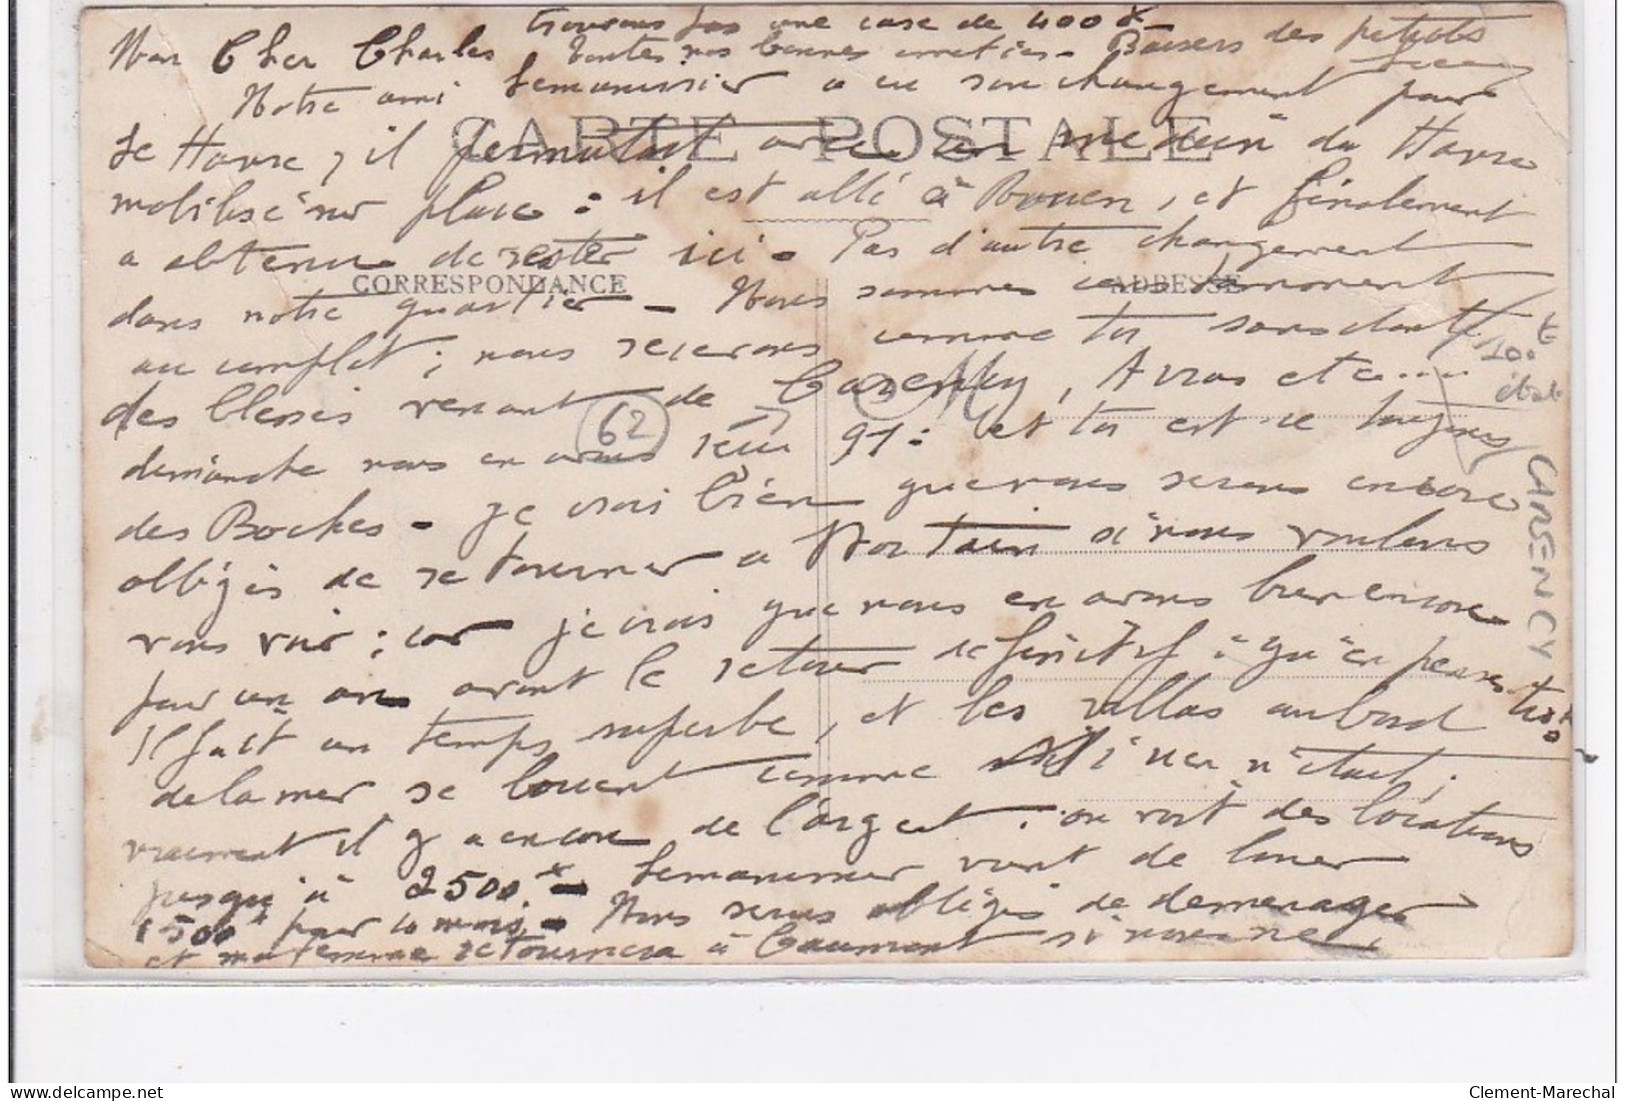 Mon Cher Charles
Notre ami Lemonnier a eu son changement pour
Le Havre, il permutait avec un médecin du Havre
mobilisé sur place : il est allé à Rouen, et finalement
a obtenu de rester ici - Pas d'autre changement
dans notre quartier - Nous sommes en ce moment
au complet ; nous recevons comme toi sans doute
des blessés venant de Carency, Arras etc....
dimanche nous en avons reçu 97 : et toi est-ce toujours
des Boches - je crois bien que nous serons encore
obligés de retourner à Mortain si nous voulons
vous voir ; car je crois que nous en avons bien encore
pour un an avant le retour définitif : qu'en penses-tu
Il fait un temps superbe, et les villas au bord
de la mer se louent comme si rien n'était ;
vraiment il y a encore de l'argent : on voit des locations
jusqu'à 2500 f - Lemonnier vient de louer
1500 f pour 4 mois - Nous serons obligés de déménager
et ma femme retournera à Caumont si nous ne
trouvons pas une case de 400 f
Toutes nos bonnes amitiés - Baisers des petiots
CARTE POSTALE
CORRESPONDANCE
ADRESSE
62
CARENCY
Clement-Marechal